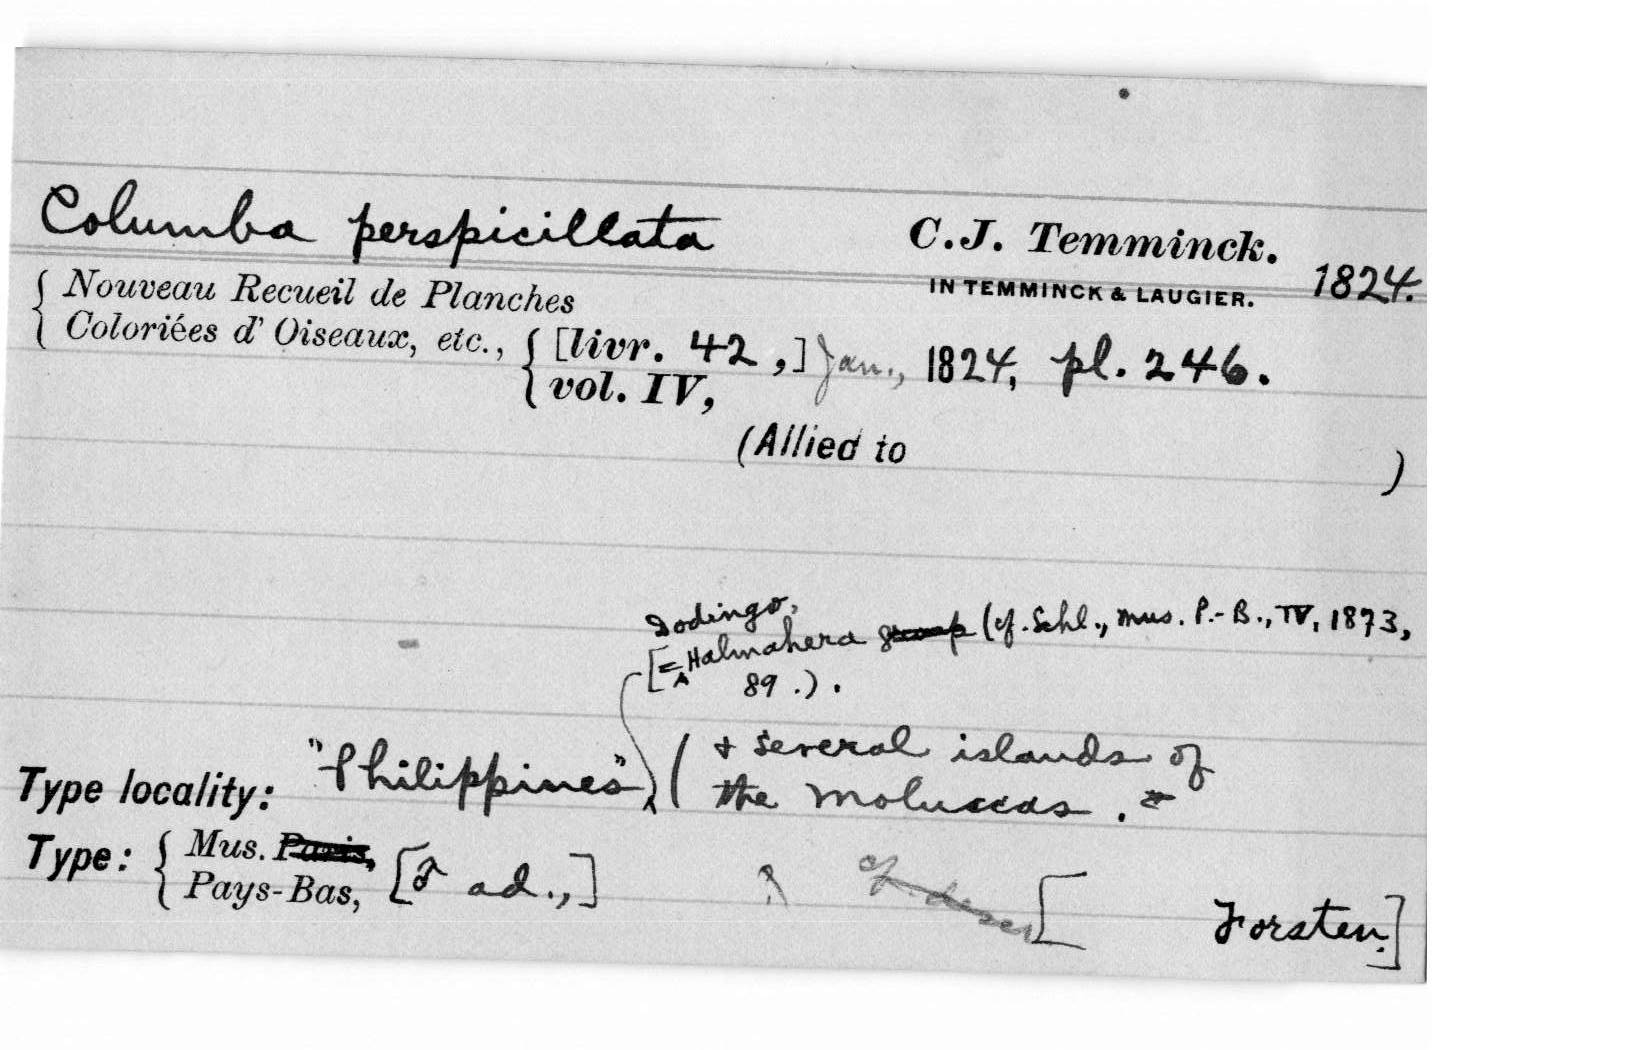 Columba perspicillata C.J. Temminck.
IN TEMMINCK & LAUGIER. 1824.
{ Nouveau Recueil de Planches
Coloriées d' Oiseaux, etc., { [livr. 42,] Jan., 1824, pl. 246.
vol. IV,
(Allied to )
Dodingo,
[= Halmahera group (cf. Schl., Mus. P.-B., IV, 1873,
89.).
Type locality: "Philippines" ( + several islands of
the Moluccas. =
Type: { Mus. Paris,
Pays-Bas, [♂ ad.,] cf. [ Forsten.]